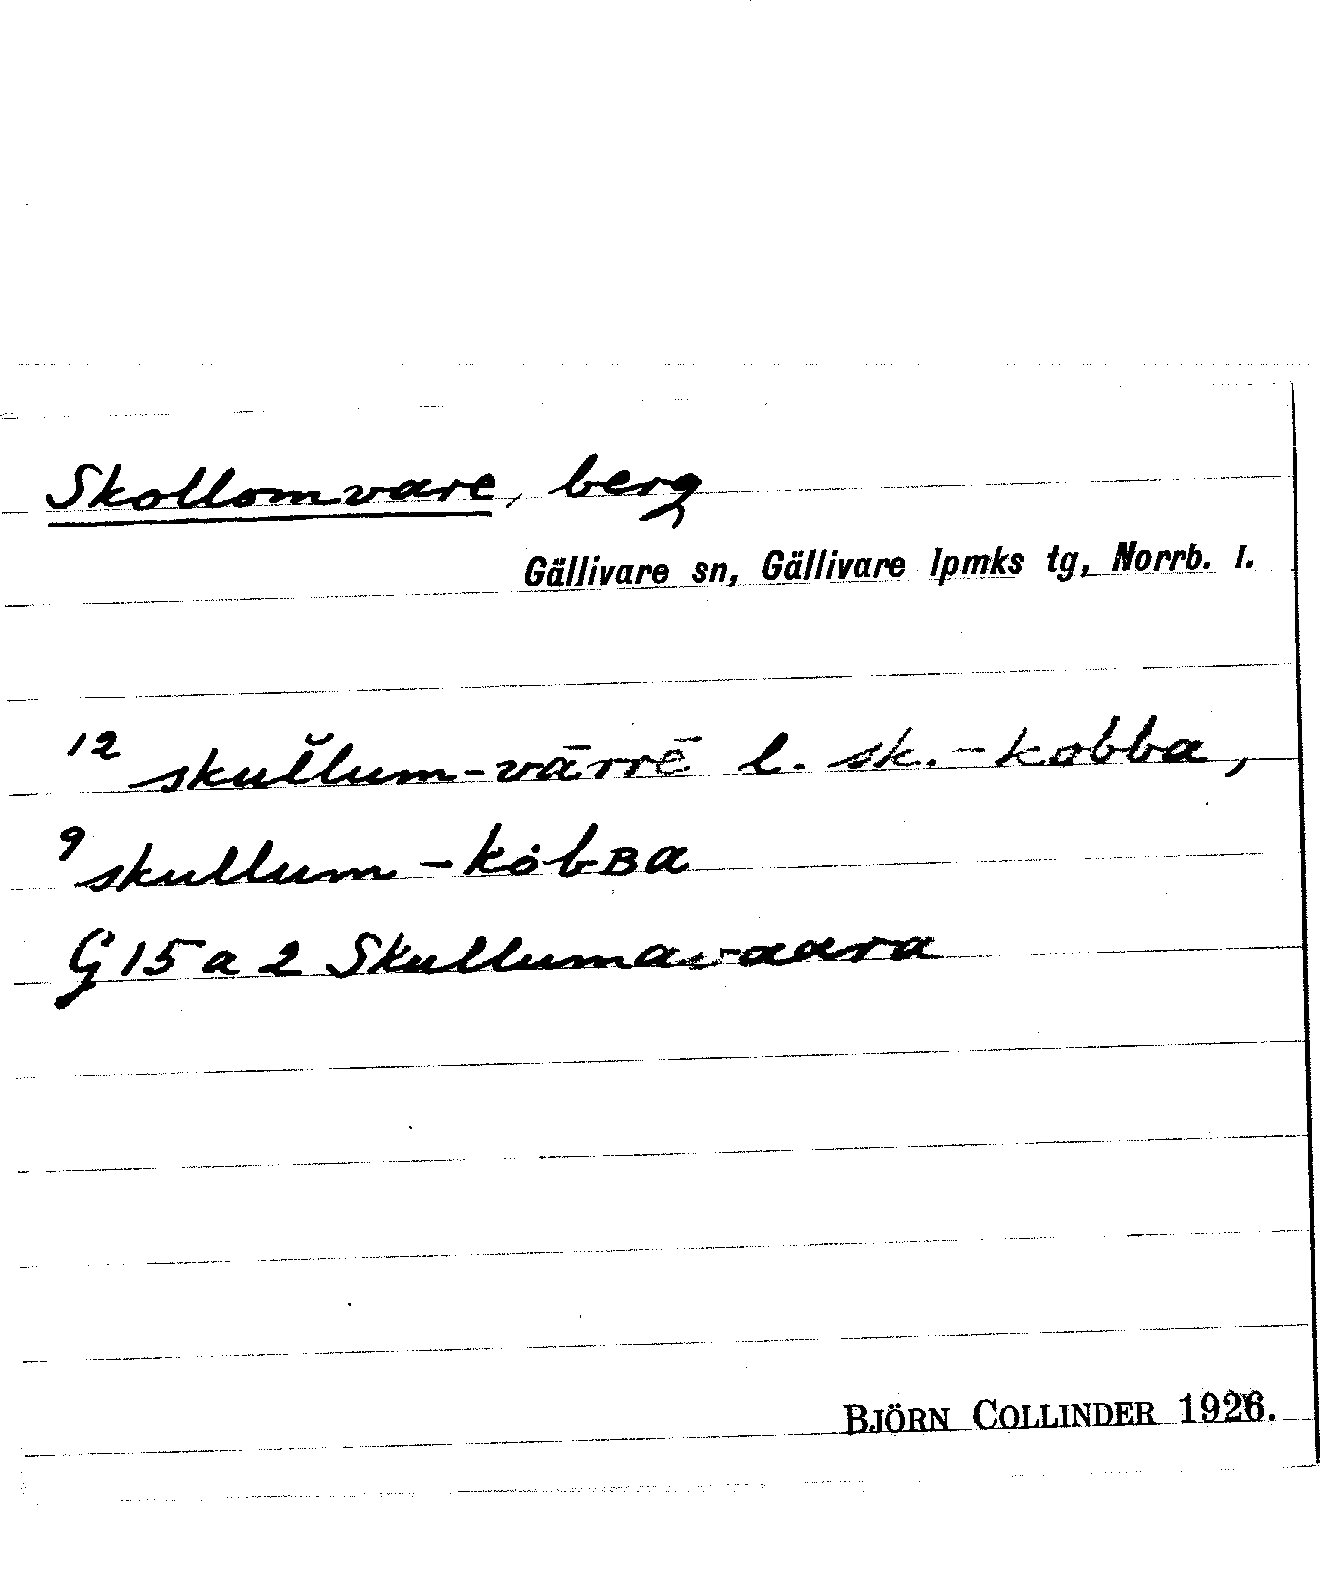 Skollomvare, berg
Gällivare sn, Gällivare lpmks tg, Norrb. l.
12 skul̆lum-vārrē l. sk.-kobba,
9 skullum-kȯbʙa
G 15 a 2 Skullumavaara
BJÖRN COLLINDER 1926.